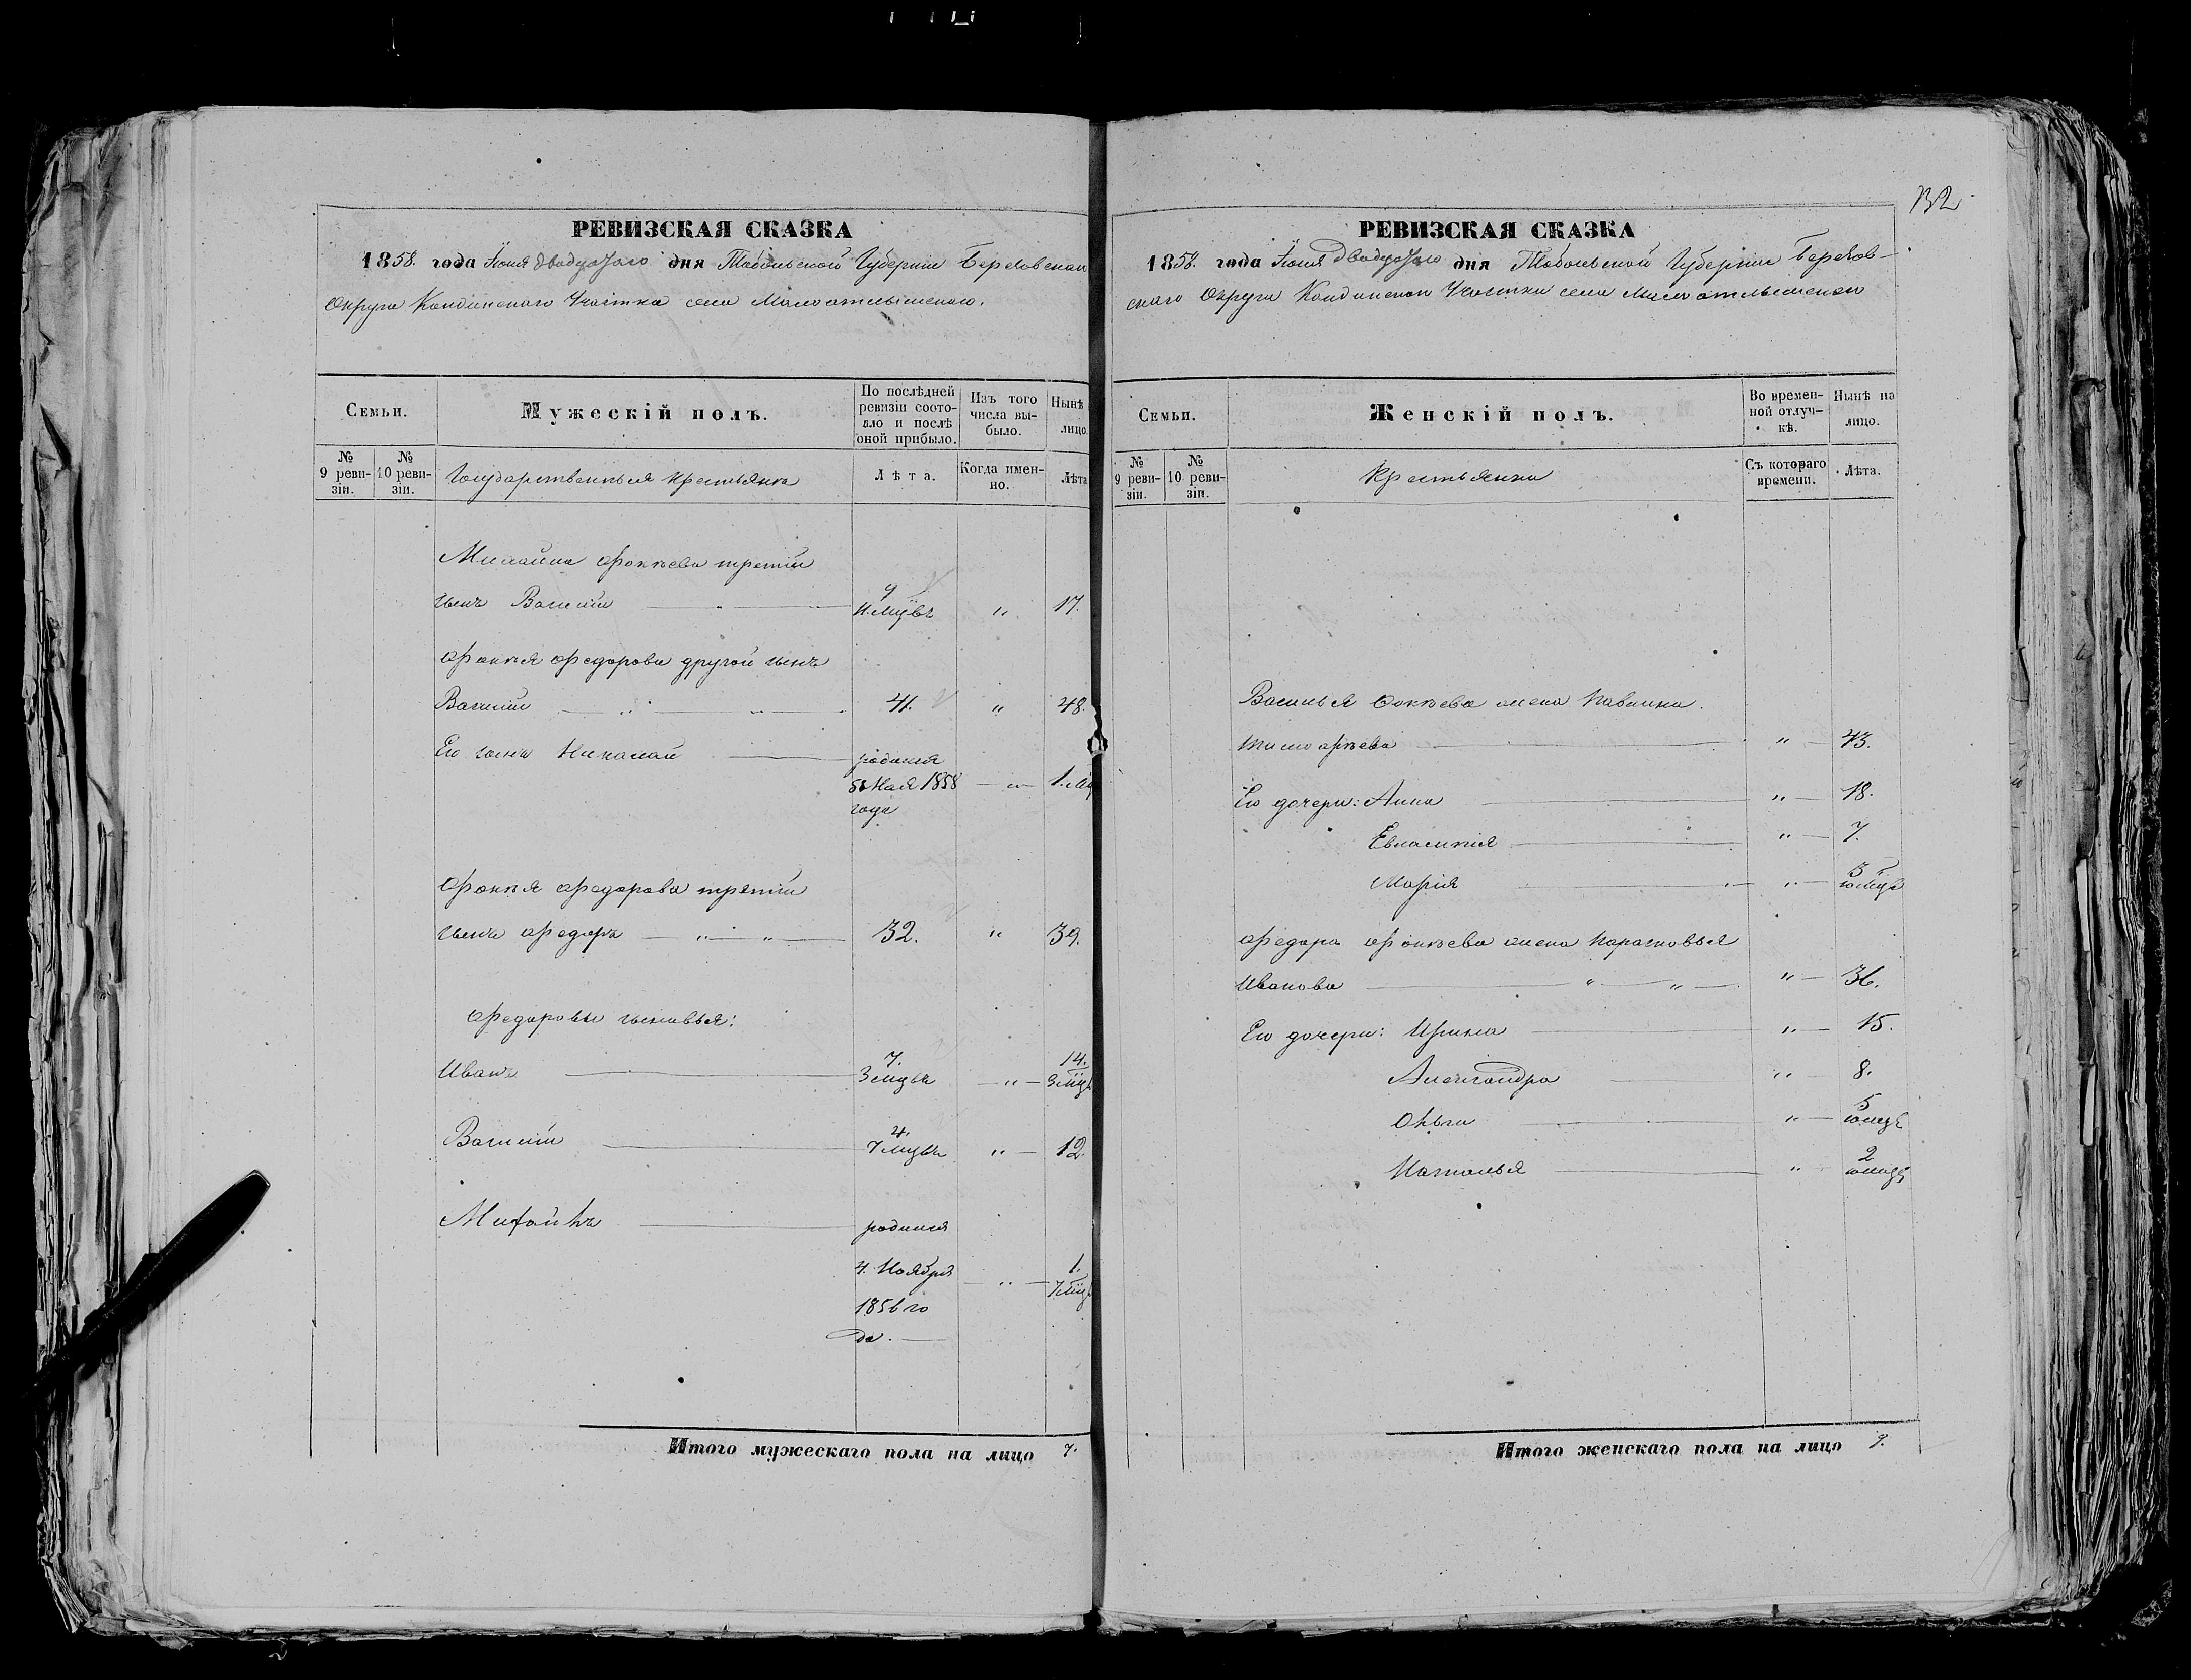 132
РЕВИЗСКАЯ СКАЗКА
1858. года Июня двадцатаго дня Тобольской Губернiи Березовскаго
Округа Кондинскаго Участка села Малоатлымскаго.
Семьи.
Мужескiй полъ.
По послѣдней ревизiи состояло и послѣ оной прибыло.
Изъ того числа выбыло.
Нынѣ лицо.
№ 9 ревизiи.
№ 10 ревизiи.
Государственныя крестьяна
Лѣта.
Когда именно.
Лѣта
Михайла Фокѣева третiй
сынъ Василiй 9 11 мцовъ „ 17.
Фокѣя Федорова другой сынъ
Василiй 41. „ 48.
Его сынъ Николай родился
5 Мая 1858 „ 1. мц
года
Фокѣя Федорова третiй
сынъ Федоръ „ „ 32. „ 39.
Федоровы сыновья:
Иванъ 7. 3 мцвъ „ 14. 3 мцъ
Василiй 4. 7 мцвъ „ 12.
Михайлъ родился
4. Ноября „ 1. 7 мцъ
1856 го
да.
Итого мужескаго пола на лицо 7.
РЕВИЗСКАЯ СКАЗКА
1858. года Июня двадцатаго дня Тобольской Губернiи Березов-
скаго Округа Кондинскаго Участка села Малоатлымскаго
Семьи.
Женскiй полъ.
Во временной отлучкѣ.
Нынѣ на лицо.
№ 9 ревизiи.
№ 10 ревизiи.
Крестьянки
Съ котораго времени.
Лѣта.
Василья Фокѣева жена Павлина
Тимофѣева „ 43.
Его дочери: Анна „ 18.
Евласикiя „ 7.
Марiя „ 3 10 мцъ
Федора Фокѣева жена Парасковья
Иванова „ „ „ 36.
Его дочери: Ирина „ 15.
Александра „ 8.
Ольга „ 5 10 мцъ
Наталья „ 2 10 мцъ
Итого женскаго пола на лицо 9.